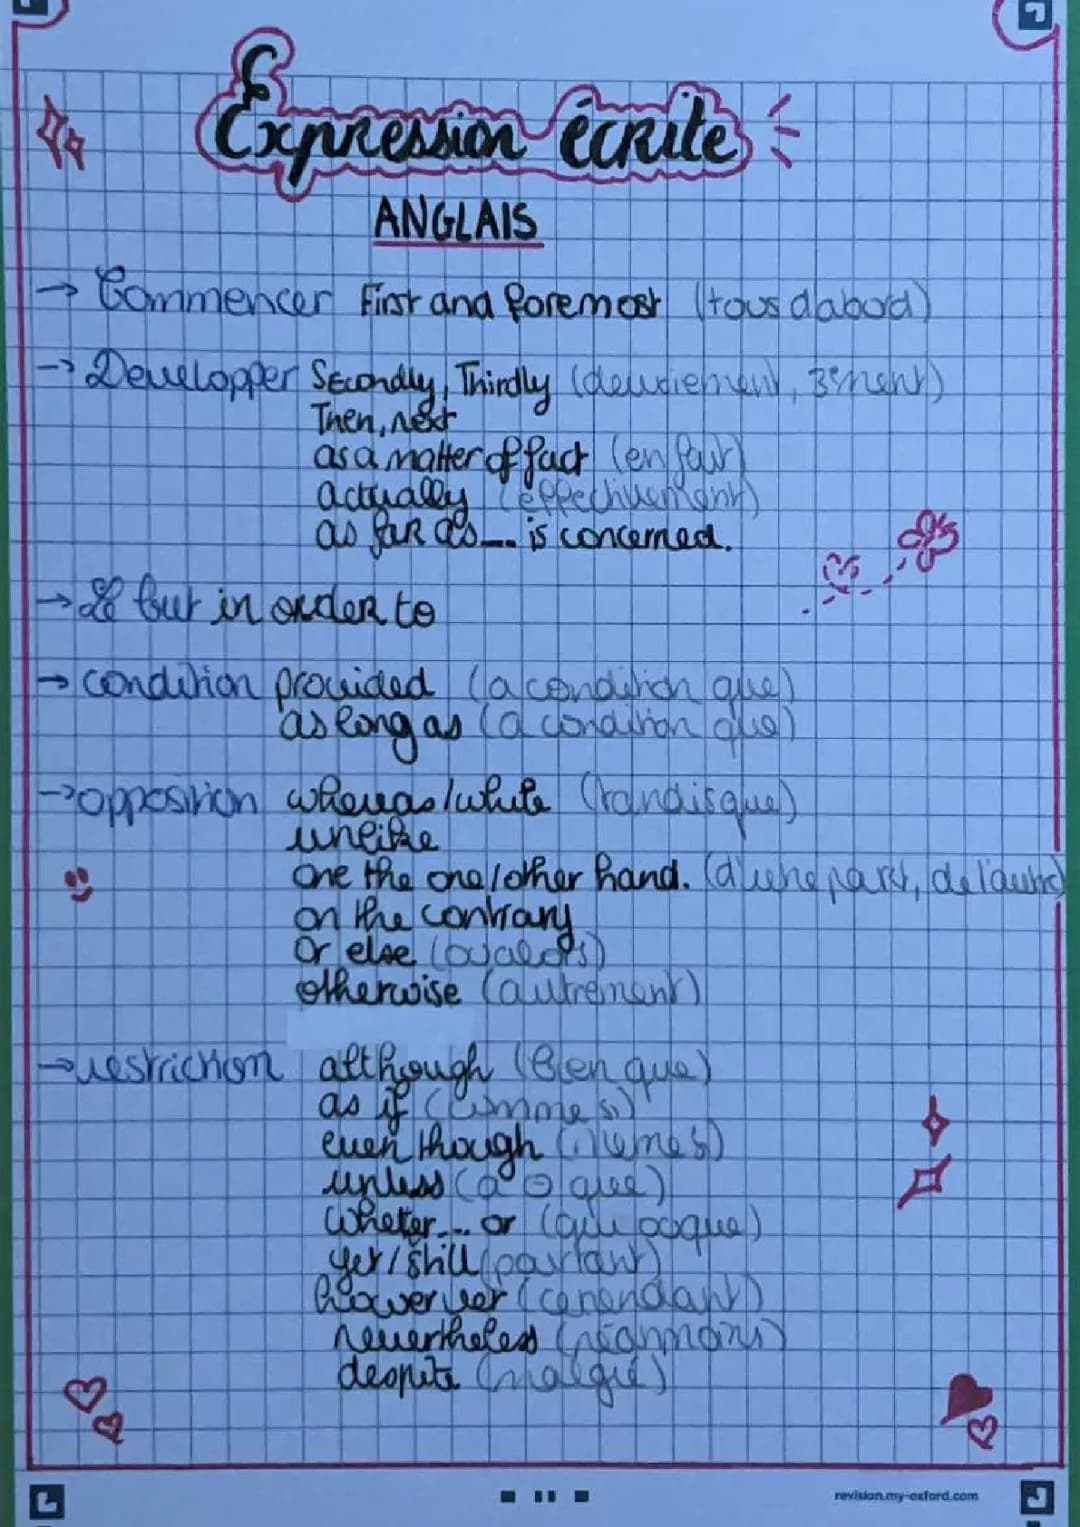 Expression écrite
ANGLAIS
→ Commencer First and foremost (tous dabord)
→ Developper Secondly, Thirdly (deuxiement, 3ement)
Then, next
as a matter of fact (en fait)
actually (effectivement)
as far as... is concerned.
→ Le but in order to
→ condition provided (a condition que)
as long as (a condition que)
→ opposition whereas/while (tandisque)
unlike
one the one/other hand. (d'une part, de l'autre)
on the contrary
Or else (ou alors)
otherwise (autrement)
→ restriction although (Bien que)
as if (comme si)
even though (même si)
unless (a que)
wheter... or (que)
yet/still (partant)
howerver (cependant)
nevertheless (néanmoins)
despite (malgré)
revision.my-oxford.com